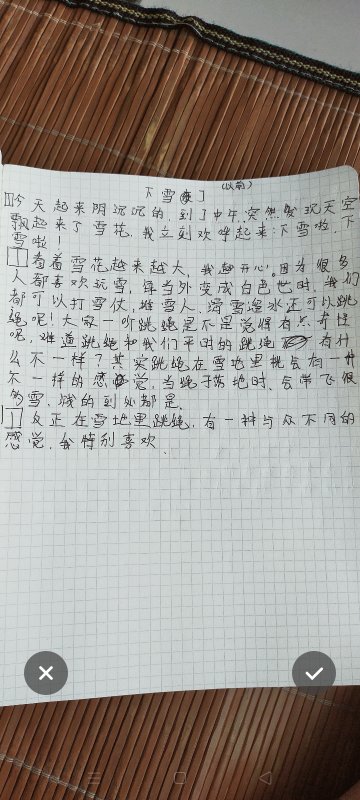 下雪了
(以前)
今天起来阴沉沉的,到了中午,突然发现天空
飘起来了雪花,我立刻欢呼起来:下雪啦,下
雪啦!
看着雪花越来越大,我越开心。因为很多
人都喜欢玩雪,每当外变成白色世时,我们
都可以打雪仗,堆雪人,滑雪溜冰还可以跳
绳呢!大家一听跳绳是不是觉得有点奇怪
呢,难道跳绳和我们平时的跳绳 有什
么不一样?其实跳绳在雪地里就会有一种
不一样的感觉,当绳子落地时,会带飞很
多雪,溅的到处都是,
反正在雪地里跳绳,有一种与众不同的
感觉,我特别喜欢.